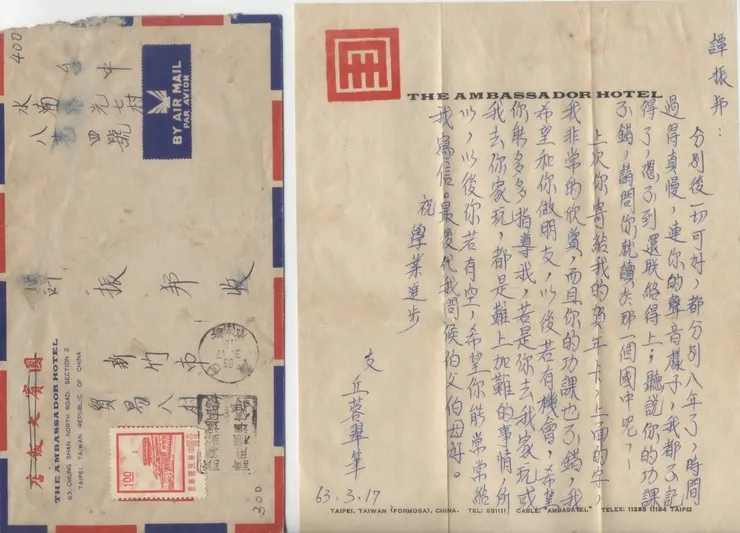 400
台中
水南光七村
四號
BY AIR MAIL
PAR AVION
振邦 收
新竹市
貿易八村
店飯大賓國
THE AMBASSADOR HOTEL
63, CHUNG SHAN NORTH ROAD, SECTION 2
TAIPEI TAIWAN REPUBLIC OF CHINA
1.00
300
THE AMBASSADOR HOTEL
譚振邦：
分別後一切可好，都分別八年了，時間
過得真慢，連你的聲音樣子，我都不記
得了，想不到還联絡得上；聽說你的功課
不錯，請問你就讀於那一個國中呢，
上次你寄給我的賀年卡，上面的字，
我非常的欣賞，而且你的功課也不錯，我
希望和你做朋友，以後若有機會，希望
你能多多指導我，若是你去我家玩或
我去你家玩，都是難上加難的事情，所
以，以後你若有空，希望你能常常給
我寫信。最後代我問侯伯父伯母好。
祝
學業進步
友 丘蓉翠筆
63.3.17
TAIPEI, TAIWAN (FORMOSA), CHINA. TEL: 551111 CABLE: "AMBADATEL" TELEX: 11255 11184 TAIPEI